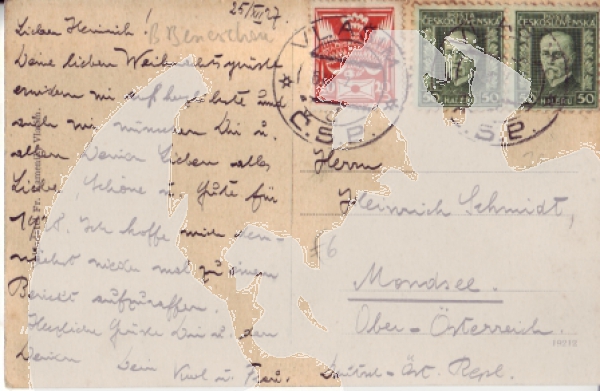 25/XII 27.
Lieber Heinrich!
Deine lieben Weihnachtsgrüße
erwidern wir auf herzlichste und
wünschen Dir u.
allen Deinen Lieben alles
Liebe, Schöne u. Gute für
1928. Ich hoffe mich dem-
nächst wieder mal zu einem
Bericht aufzuraffen.
Herzliche Grüße Dir u. den
Deinen Dein Karl u. Frau.
ČESKOSLOVENSKÁ
ČESKOSLOVENSKÁ
50 HALÉŘŮ 50
HALÉŘŮ 50
Č.S.P.
Č.S.P.
Herrn
Heinrich Schmidt,
Mondsee.
Ober-Österreich.
Deutsch-Öst. Repl.